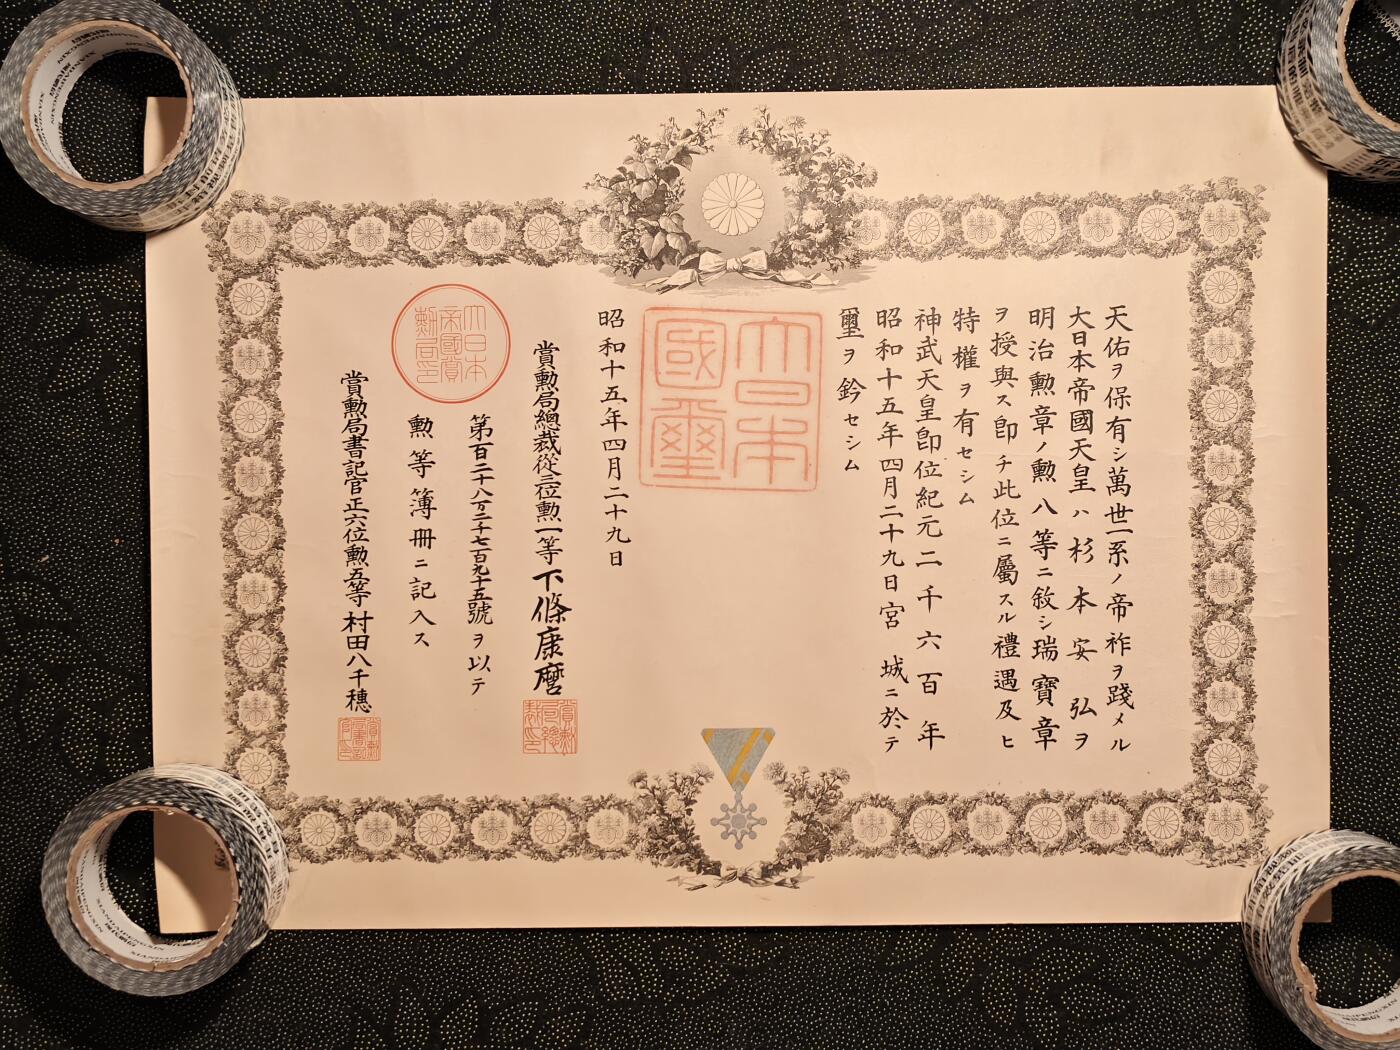 天佑ヲ保有シ萬世一系ノ帝祚ヲ踐メル
大日本帝國天皇ハ杉本安弘ヲ
明治勲章ノ勲八等ニ敍シ瑞寶章
ヲ授與ス卽チ此位ニ屬スル禮遇及ヒ
特權ヲ有セシム
神武天皇卽位紀元二千六百年
昭和十五年四月二十九日宮城ニ於テ
璽ヲ鈐セシム
大日本
國璽
昭和十五年四月二十九日
賞勲局總裁從三位勲一等下條康麿
第百二十八万二千七百九十五號ヲ以テ
勲等簿冊ニ記入ス
大日本
帝國賞
勲局印
賞勲局書記官正六位勲五等村田八千穗